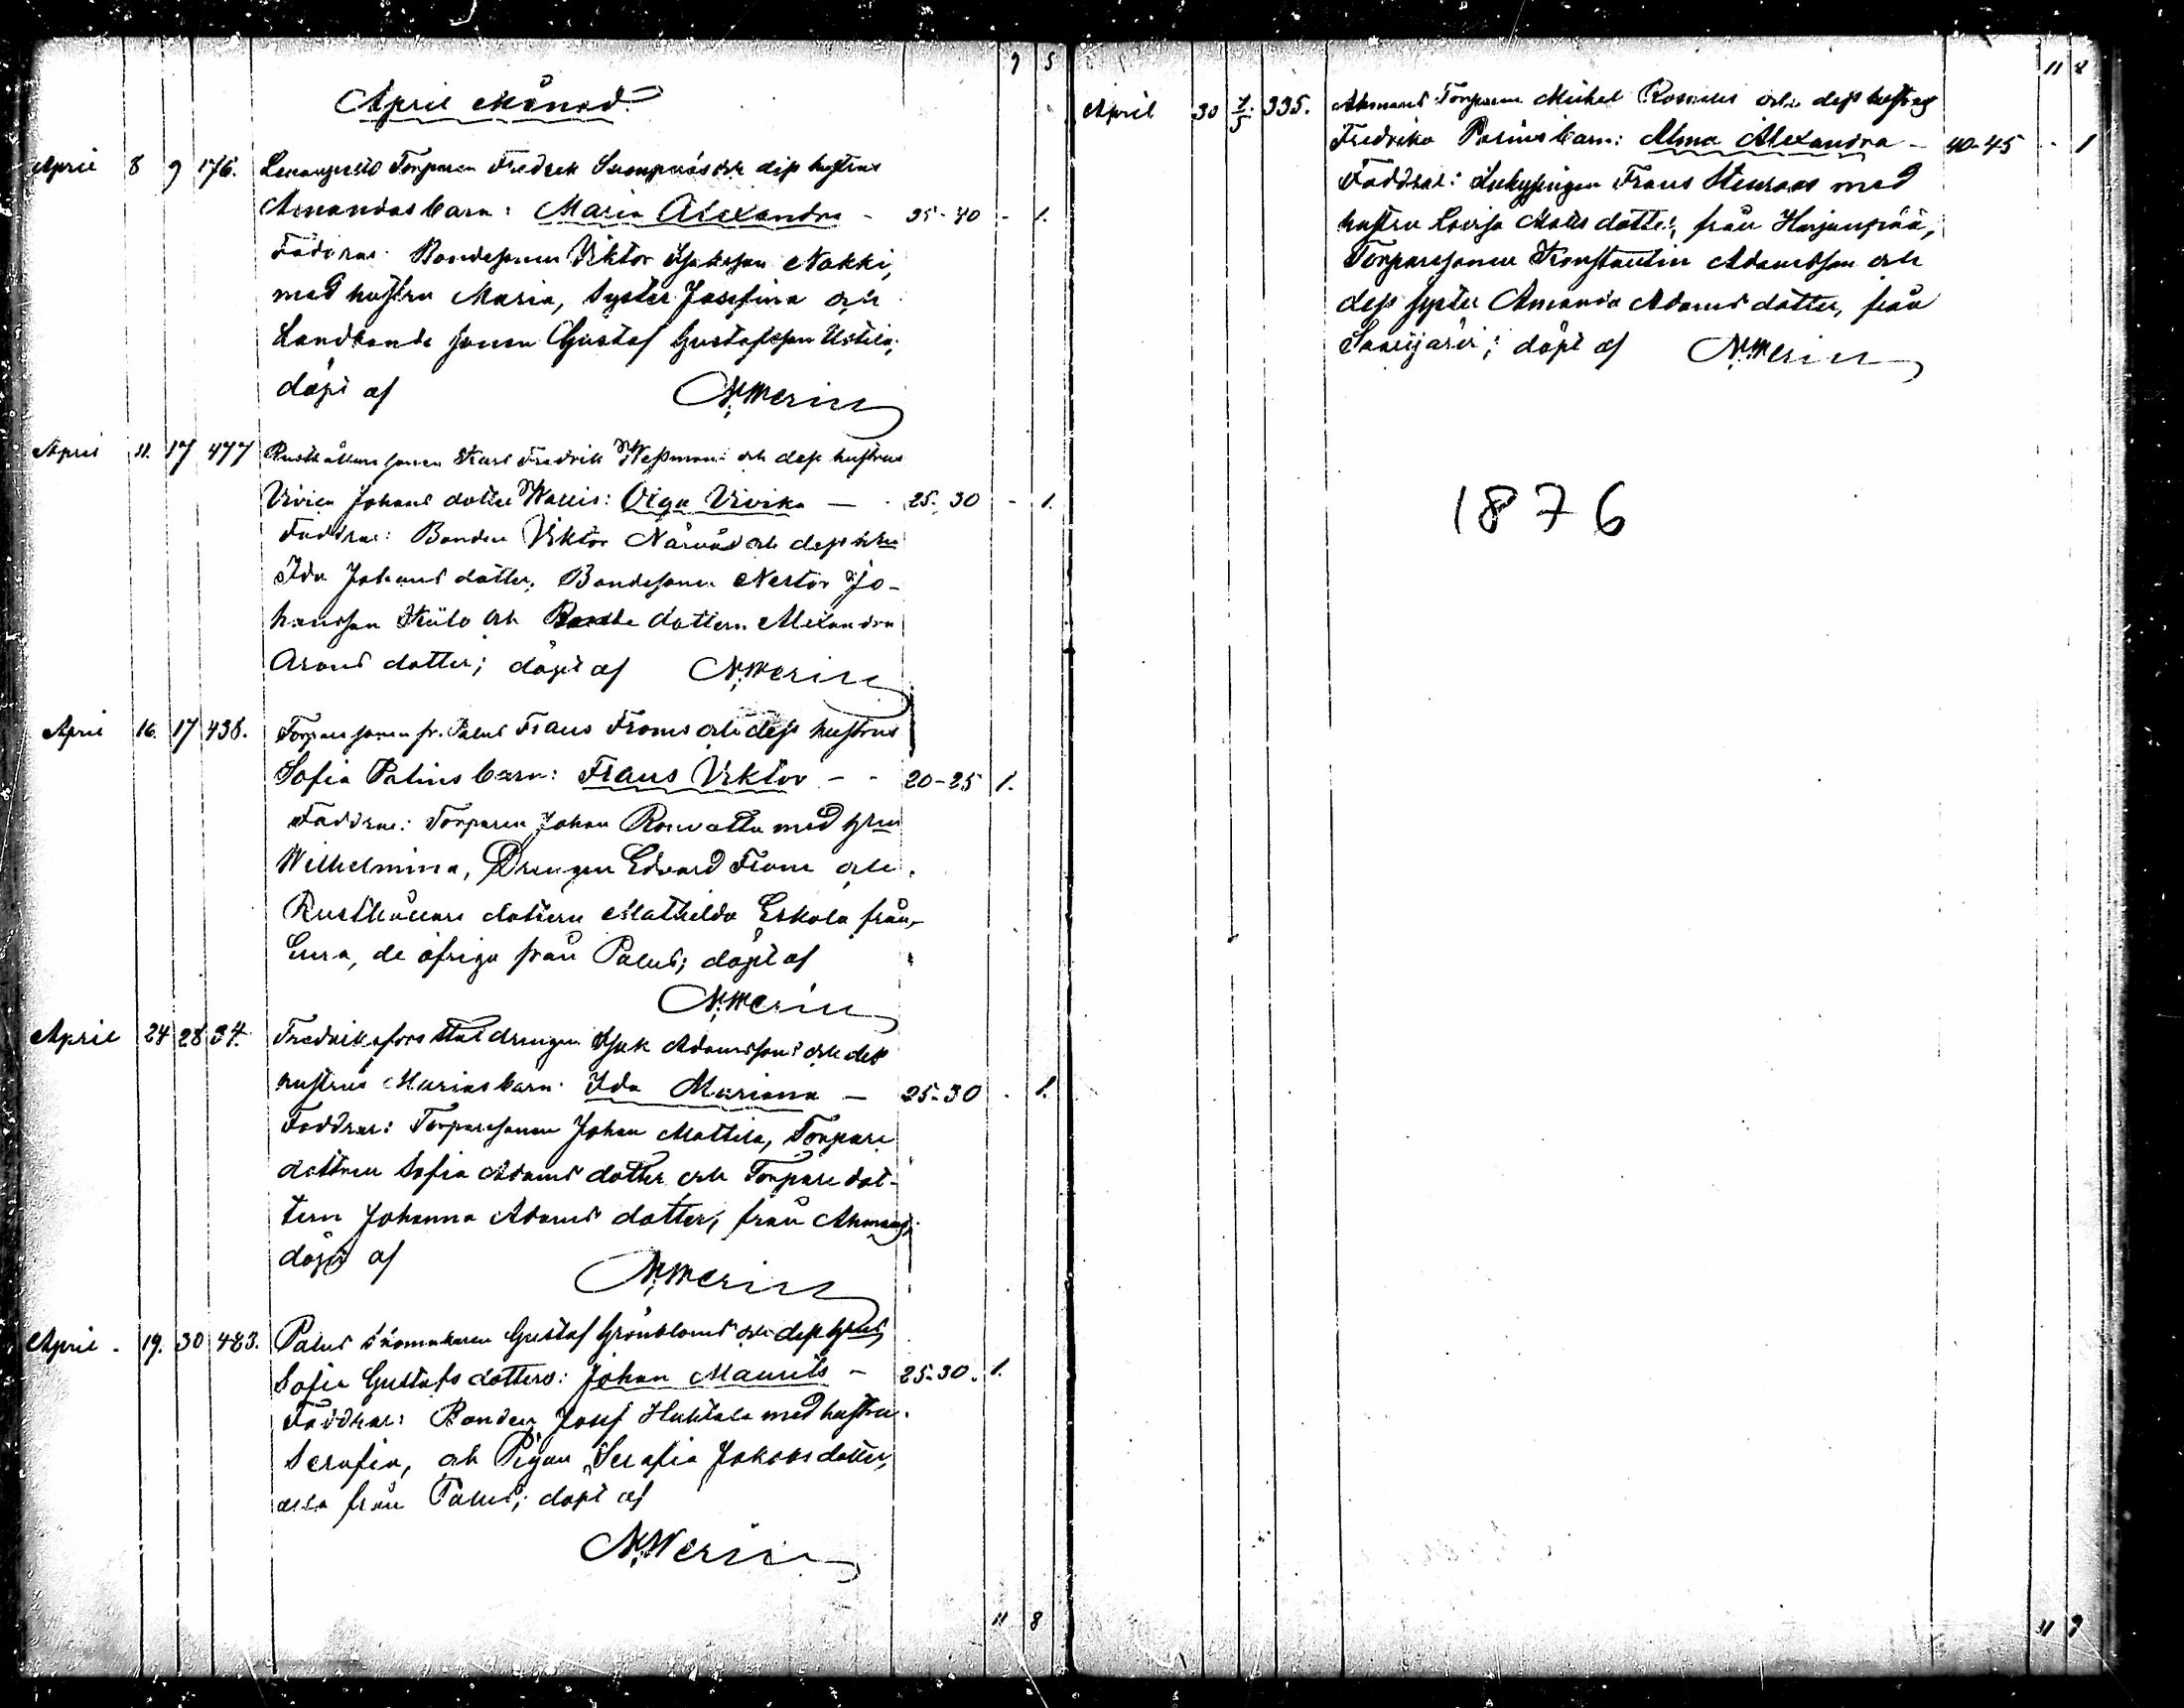 9 5
April Månad
April 8 9 176. Torparen Fredrik och dess hustrus
Amandas barn: Maria Alexandra - 35-40 - 1.
Faddrar: Bondesonen Viktor Isaksson Nakki,
med hustru Maria, Syster Josefina och
Landbonde sonen Gustaf Gustafsson Ustila;
döpt af N. Merin
April 11. 17 477 Rusthållare sonen Karl Fredrik Wessmans och dess hustrus
Vivica Johans dotter Wallis: Olga Vivika — 25-30 - 1.
Faddrar: Bonden Viktor och dess
Ida Johans dotter, Bondesonen Nestor Jo-
hansson och Bonde dottern Alexandra
Arons dotter; döpt af N. Merin
April 16. 17 438. Torpare sonen fr. Palus Frans Froms och dess hustrus
Sofia Palins barn: Frans Viktor - - 20-25 1.
Faddrar: Torparen Johan med hru
Wilhelmina, Drengen Edvard From och
Rusthållare dottern Mathilda Eskola från
Eura, de öfriga från Palus; döpt af
N. Merin
April 24 28 34. Fredriksfors Stal drengen Isak Adamssons och dess
hustrus Marias barn: Ida Mariana — 25-30 . 1.
Faddrar: Torparesonen Johan Mattila, Torpare
dottren Sofia Adams dotter och Torpare dot-
tern Johanna Adams dotter, från Ahmaus;
döpt af
N. Merin
April. 19. 30 483. Palus skomakaren Gustaf Grönbloms och dess hrus
Sofia Gustafs dotters: Johan Maurits - 25-30. 1.
Faddrar: Bonden Josef Huhtala med hustru
Serafia, och Pigan Serafia Jakobs dotter,
alla från Palus; döpt af
N. Merin
11 8
11 8
April 30 7/5 335. Ahmaus Torparen Mikel och dess hustrus
Fredrika Palins barn: Alma Alexandra - 40-45 - 1
Faddrar: Frans Stenroos med
hustru Lovisa Mats dotter, från Harjunpää,
Torparesonen Konstantin Adamsson och
dess syster Amanda Adams dotter, från
Saarijärvi; döpt af N. Merin
1876
11 9